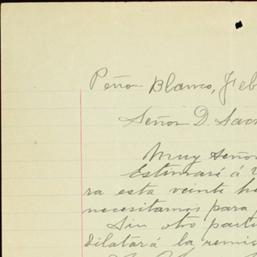 Peñon Blanco, Feb
Señor D. Sac
Muy Seño
Estimaré á V
ra esta veinte h
necesitamos para
Sin otro parti
dilatará la remis